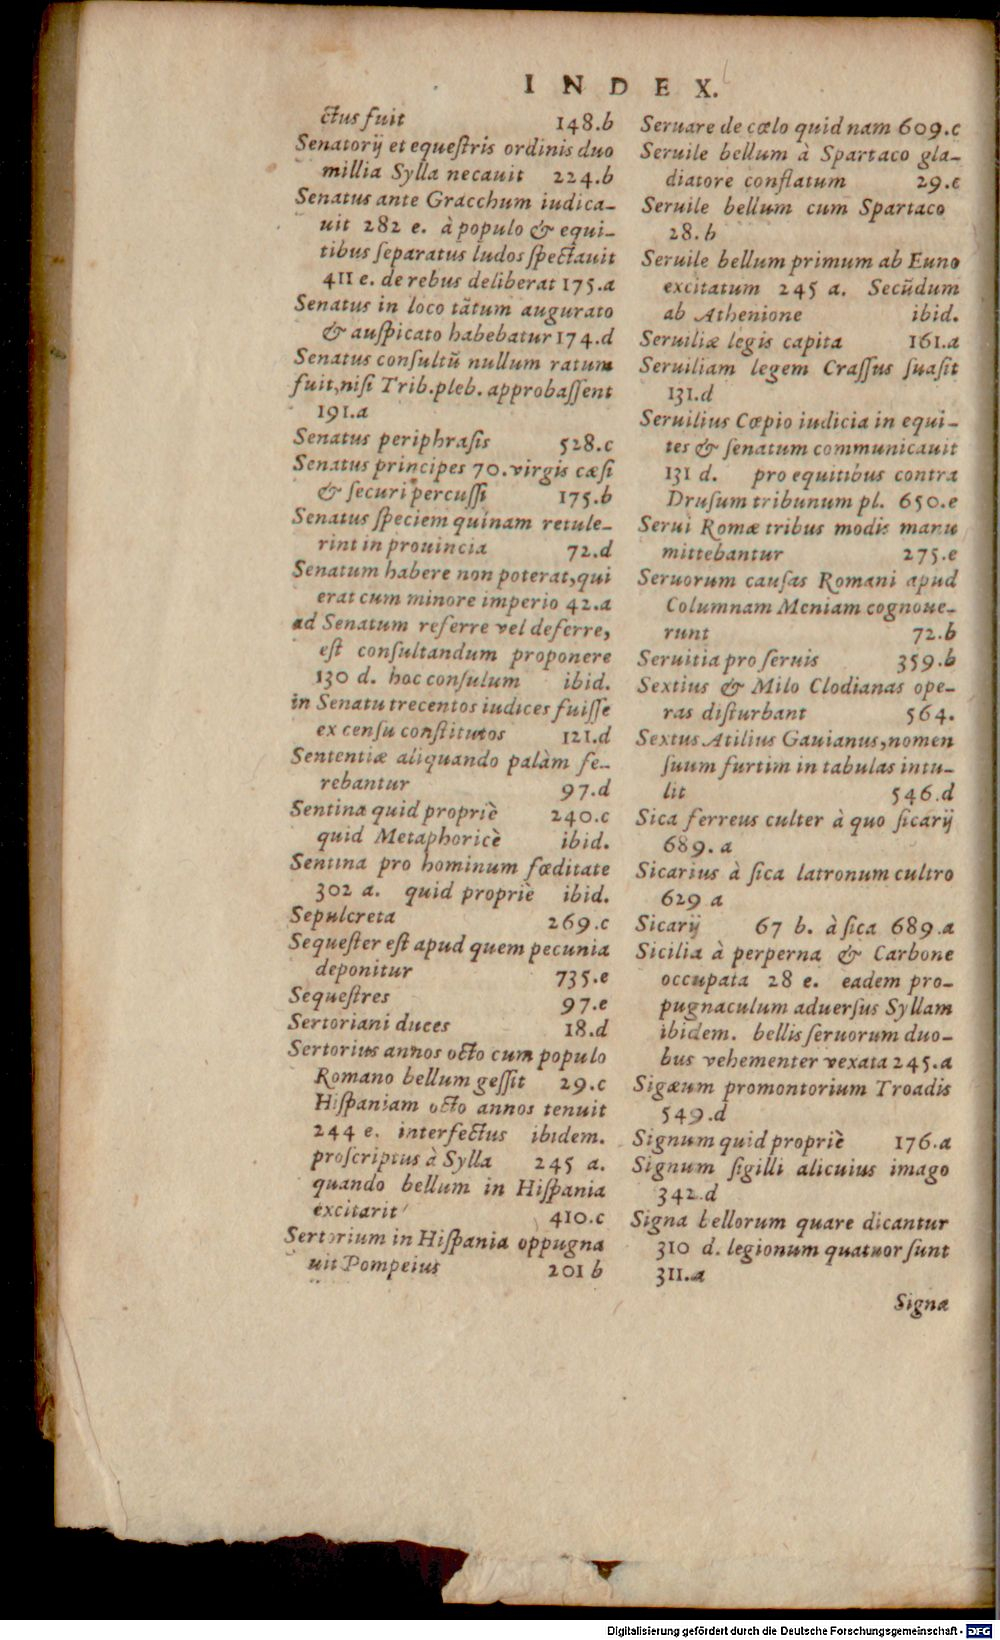 INDEX.
ctus fuit 148.b
Senatorij et equeſtris ordinis duo
millia Sylla necauit 224.b
Senatus ante Gracchum iudica-
uit 282 e. à populo & equi-
tibus ſeparatus ludos ſpectauit
411 e. de rebus deliberat 175.a
Senatus in loco tãtum augurato
& auſpicato habebatur 174.d
Senatus conſultũ nullum ratum
fuit, niſi Trib. pleb. approbaſſent
191.a
Senatus periphraſis 528.c
Senatus principes 70. virgis cæſi
& ſecuri percuſſi 175.b
Senatus ſpeciem quinam retule-
rint in prouincia 72.d
Senatum habere non poterat, qui
erat cum minore imperio 42.a
ad Senatum referre vel deferre,
eſt conſultandum proponere
130 d. hoc conſulum ibid.
in Senatu trecentos iudices fuiſſe
ex cenſu conſtitutos 121.d
Sententiæ aliquando palàm fe-
rebantur 97.d
Sentina quid propriè 240.c
quid Metaphoricè ibid.
Sentina pro hominum fœditate
302 a. quid propriè ibid.
Sepulcreta 269.c
Sequeſter eſt apud quem pecunia
deponitur 735.e
Sequeſtres 97.e
Sertoriani duces 18.d
Sertorius annos octo cum populo
Romano bellum geſſit 29.c
Hiſpaniam octo annos tenuit
244 e. interfectus ibidem.
proſcriptus à Sylla 245 a.
quando bellum in Hiſpania
excitarit 410.c
Sertorium in Hiſpania oppugna
uit Pompeius 201 b
Seruare de cœlo quid nam 609.c
Seruile bellum à Spartaco gla-
diatore conflatum 29.c
Seruile bellum cum Spartaco
28.b
Seruile bellum primum ab Euno
excitatum 245 a. Secũdum
ab Athenione ibid.
Seruiliæ legis capita 161.a
Seruiliam legem Craſſus ſuaſit
131.d
Seruilius Cœpio iudicia in equi-
tes & ſenatum communicauit
131 d. pro equitibus contra
Druſum tribunum pl. 650.e
Serui Romæ tribus modis manu
mittebantur 275.e
Seruorum cauſas Romani apud
Columnam Meniam cognoue-
runt 72.b
Seruitia pro ſeruis 359.b
Sextius & Milo Clodianas ope-
ras diſturbant 564.
Sextus Atilius Gauianus, nomen
ſuum furtim in tabulas intu-
lit 546.d
Sica ferreus culter à quo ſicarij
689.a
Sicarius à ſica latronum cultro
629 a
Sicarij 67 b. à ſica 689.a
Sicilia à perperna & Carbone
occupata 28 e. eadem pro-
pugnaculum aduerſus Syllam
ibidem. bellis ſeruorum duo-
bus vehementer vexata 245.a
Sigæum promontorium Troadis
549.d
Signum quid propriè 176.a
Signum ſigilli alicuius imago
342.d
Signa bellorum quare dicantur
310 d. legionum quatuor ſunt
311.a
Signa
Digitalisierung gefördert durch die Deutsche Forschungsgemeinschaft - DFG